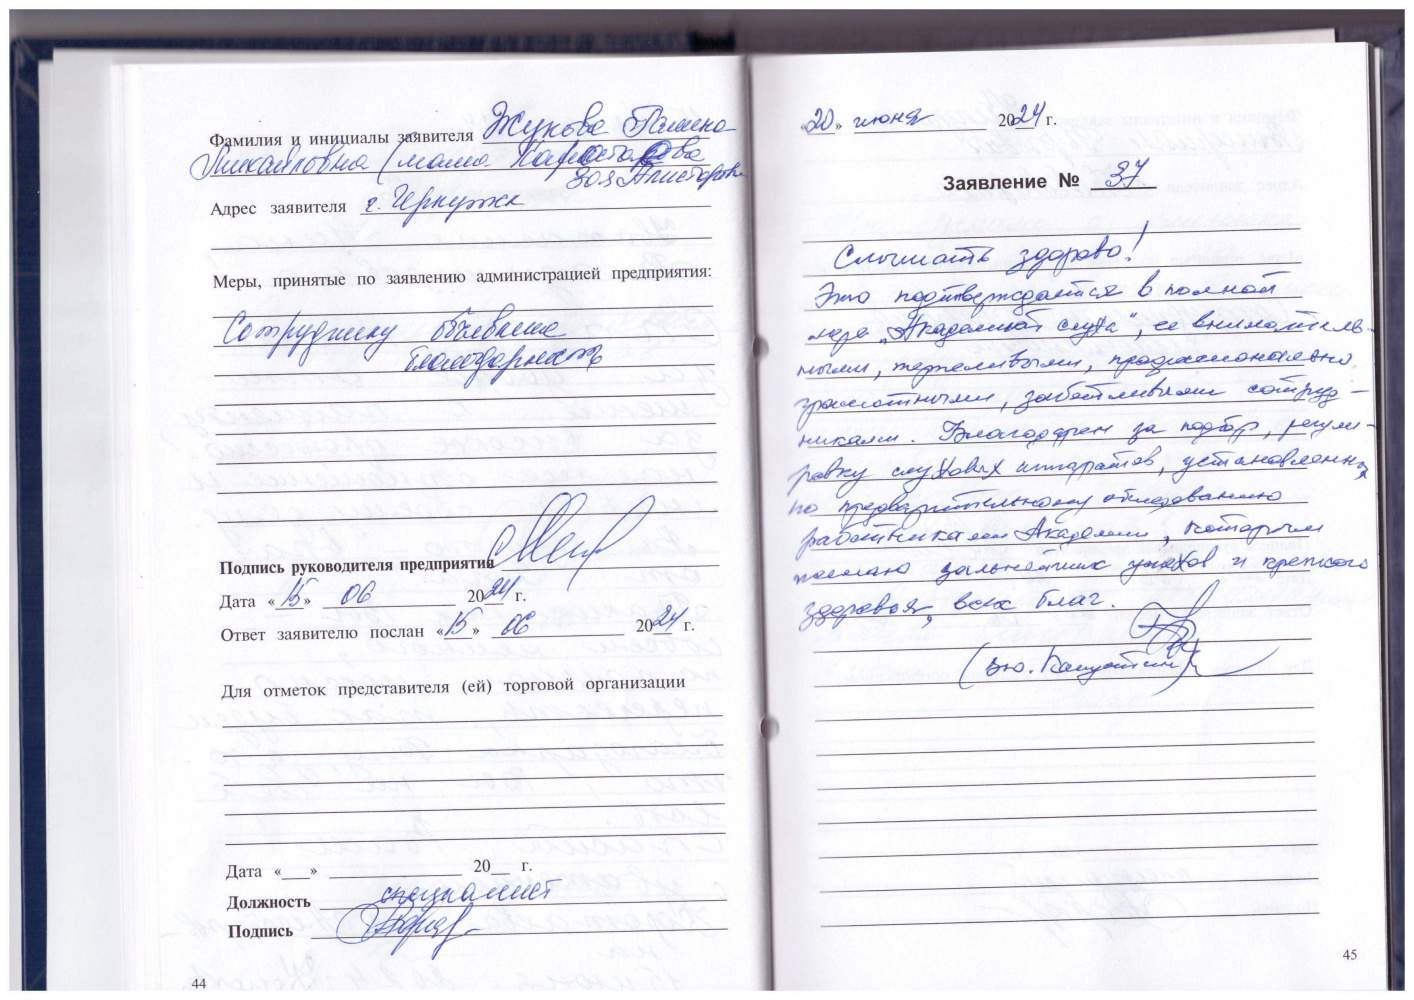 Фамилия и инициалы заявителя Жукова
(мама
Зоя
Адрес заявителя г.
Меры, принятые по заявлению администрацией предприятия:
Сотруднику объявлена
благодарность
Подпись руководителя предприятия
Дата «15» 06 2024 г.
Ответ заявителю послан «15» 06 2024 г.
Для отметок представителя (ей) торговой организации
Дата «___» 20__ г.
Должность специалист
Подпись
44
«20» июня 2024 г.
Заявление № 37
Слышать здорово!
Это подтверждается в полной
мере „Академией слуха", ее вниматель-
ными, терпеливыми, профессионально
грамотными, заботливыми сотруд-
никами. Благодарен за подбор, регули-
ровку слуховых аппаратов, установленных
по предварительному обследованию
работниками Академии, которым
желаю дальнейших успехов и крепкого
здоровья, всех благ.
45